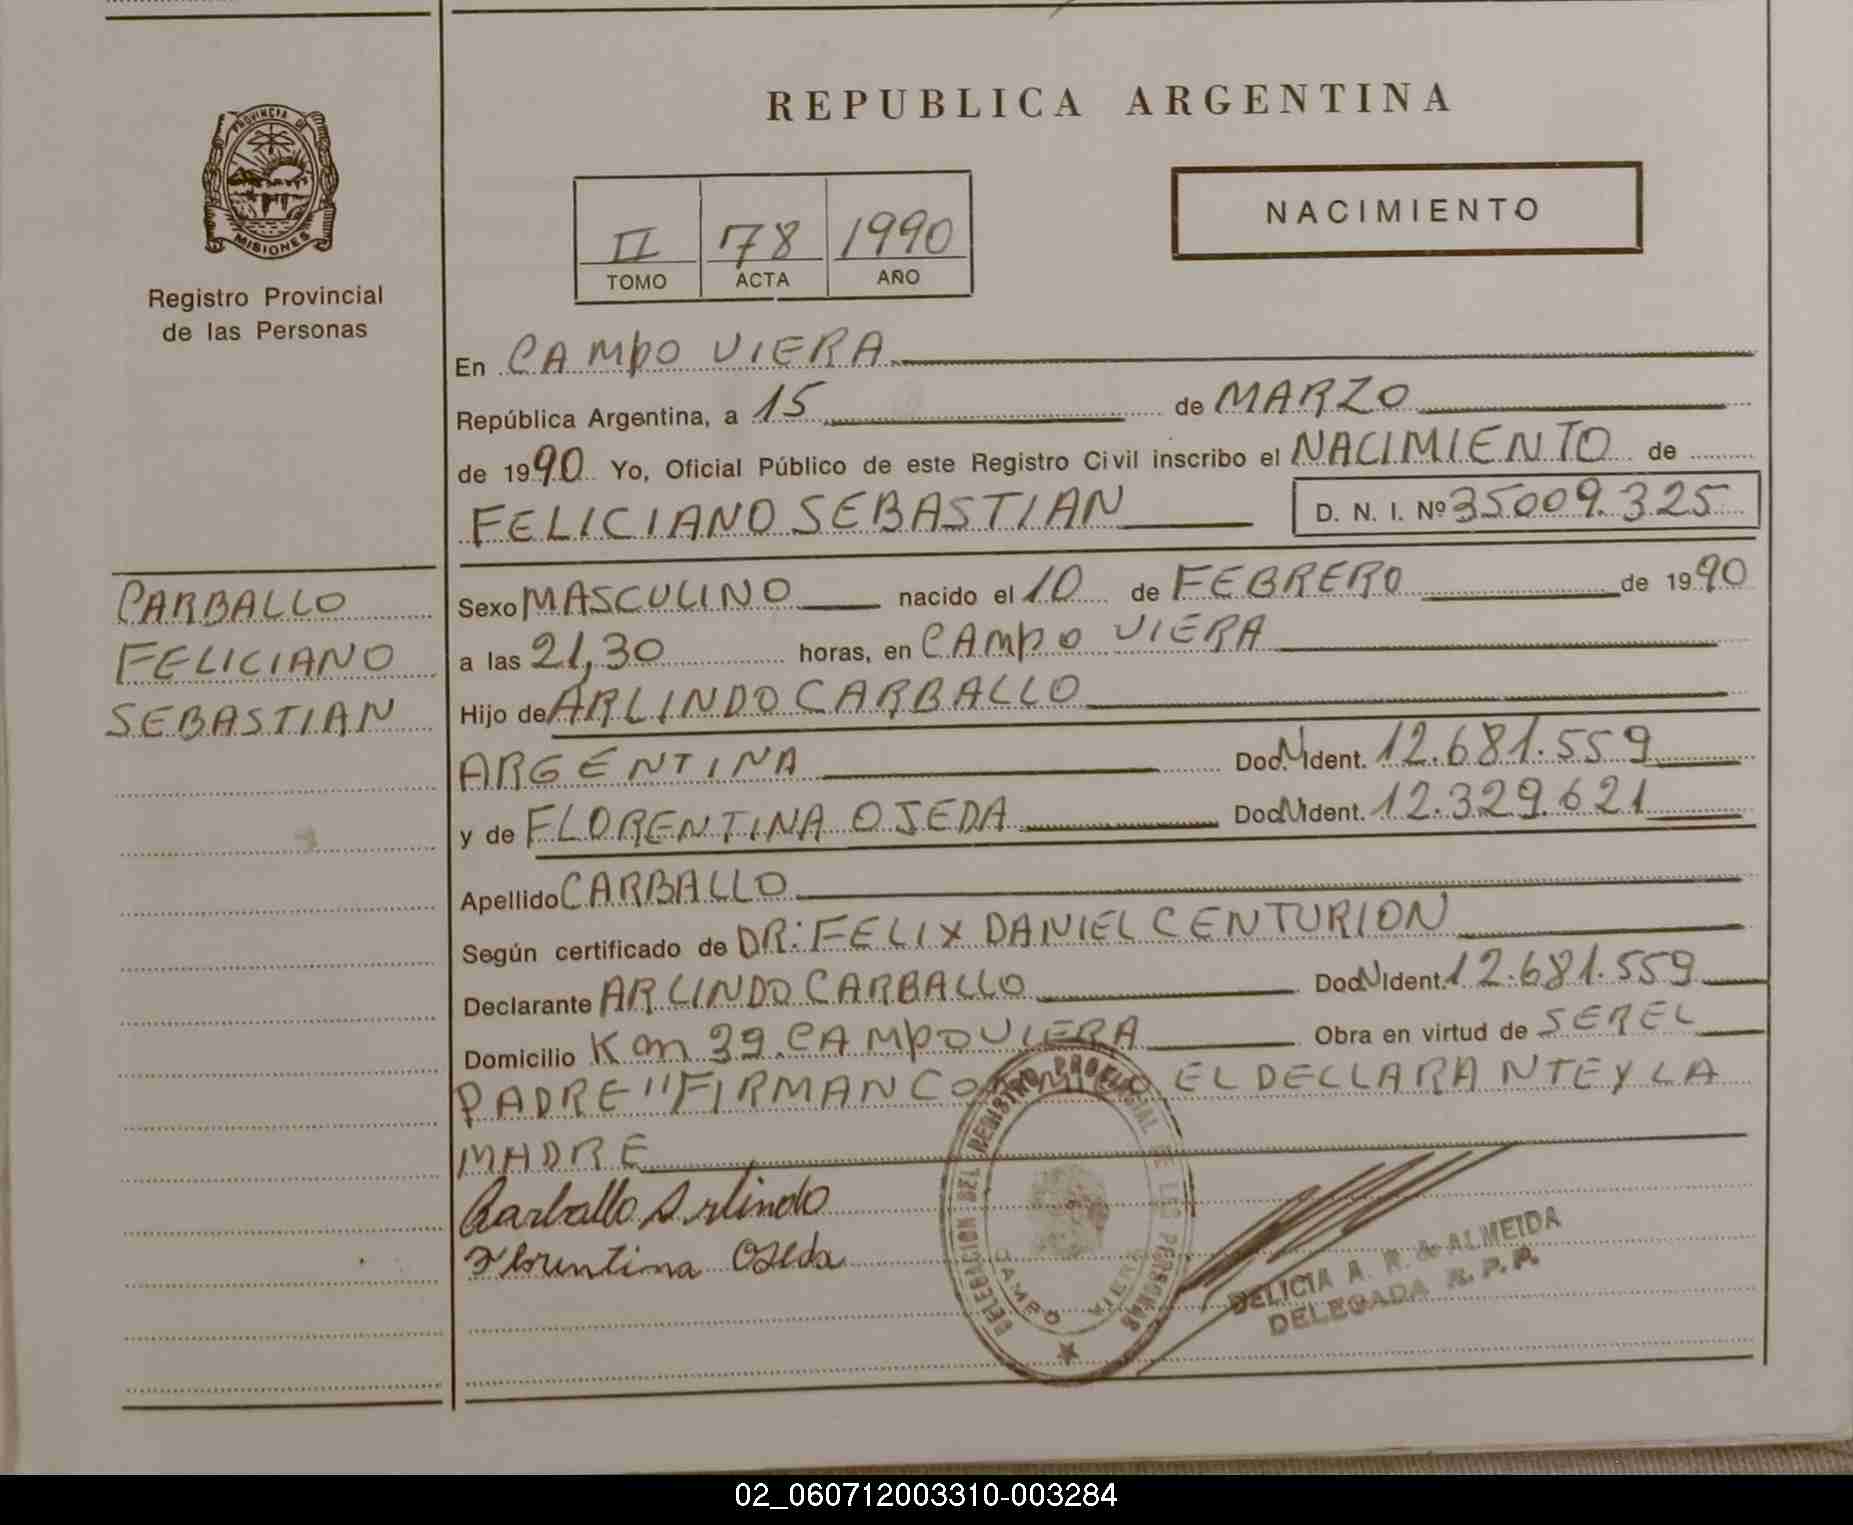 PROVINCIA DE
MISIONES
Registro Provincial
de las Personas
CARBALLO
FELICIANO
SEBASTIAN
REPUBLICA ARGENTINA
II 78 1990
TOMO ACTA AÑO
NACIMIENTO
En CAMPO VIERA
República Argentina, a 15 de MARZO
de 1990 Yo, Oficial Público de este Registro Civil inscribo el NACIMIENTO de
FELICIANO SEBASTIAN D. N. I. Nº 35009.325
Sexo MASCULINO nacido el 10 de FEBRERO de 1990
a las 21,30 horas, en CAMPO VIERA
Hijo de ARLINDO CARBALLO
ARGENTINA Doc. N Ident. 12.681.559
y de FLORENTINA OJEDA Doc. N Ident. 12.329.621
Apellido CARBALLO
Según certificado de DR: FELIX DANIEL CENTURION
Declarante ARLINDO CARBALLO Doc. N Ident. 12.681.559
Domicilio Km 39. CAMPO VIERA Obra en virtud de SER EL
PADRE" FIRMAN CONMIGO EL DECLARANTE Y LA
MADRE
Carballo Arlindo
Florentina Ojeda
DELEGACION DEL REGISTRO PROVINCIAL DE LAS PERSONAS
CAMPO VIERA
DELICIA A. R. de ALMEIDA
DELEGADA R. P. P.
02_060712003310-003284